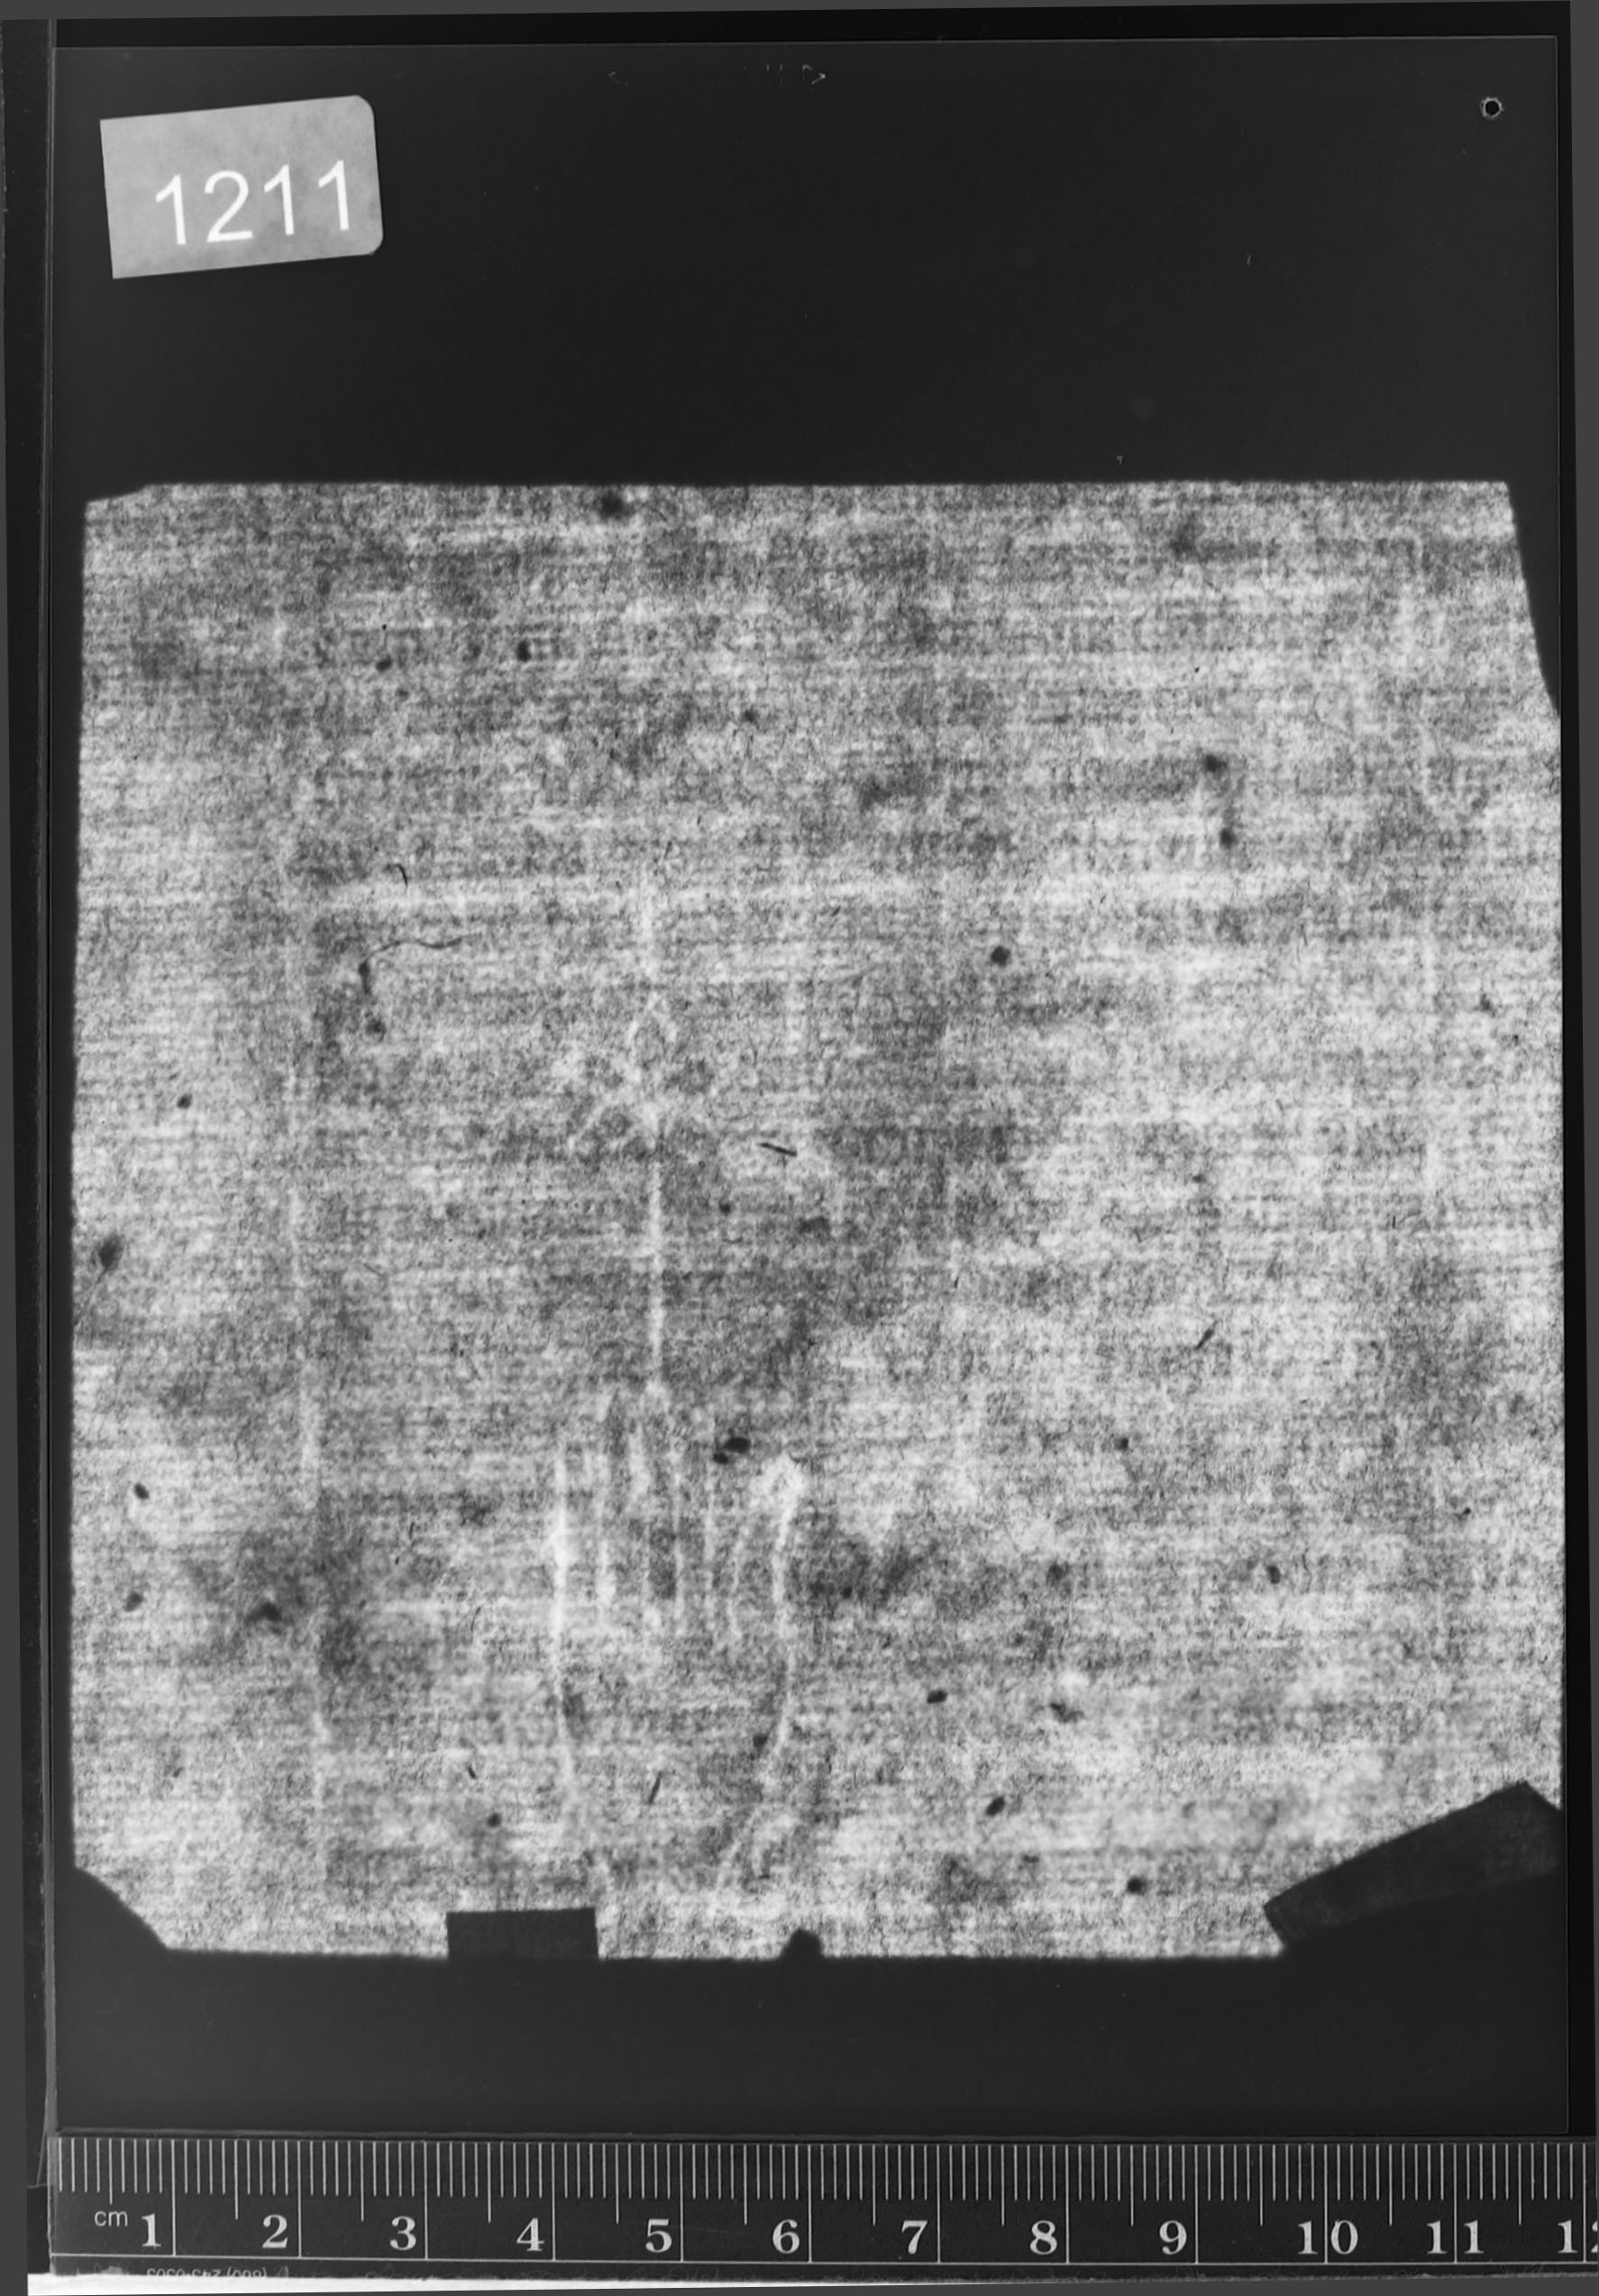 1211
cm 1 2 3 4 5 6 7 8 9 10 11